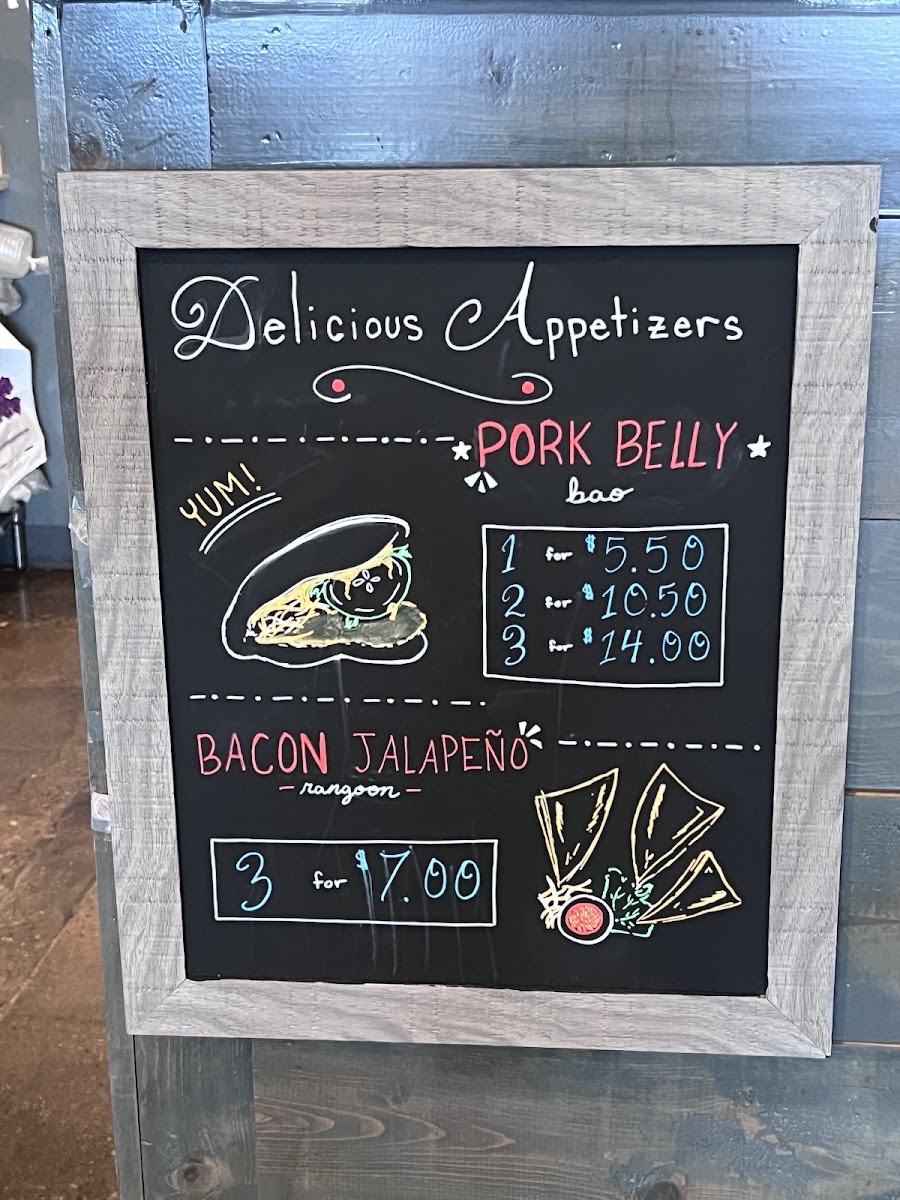 Delicious Appetizers
PORK BELLY
bao
YUM!
1 for $5.50
2 for $10.50
3 for $14.00
BACON JALAPEÑO
- rangoon -
3 for $7.00